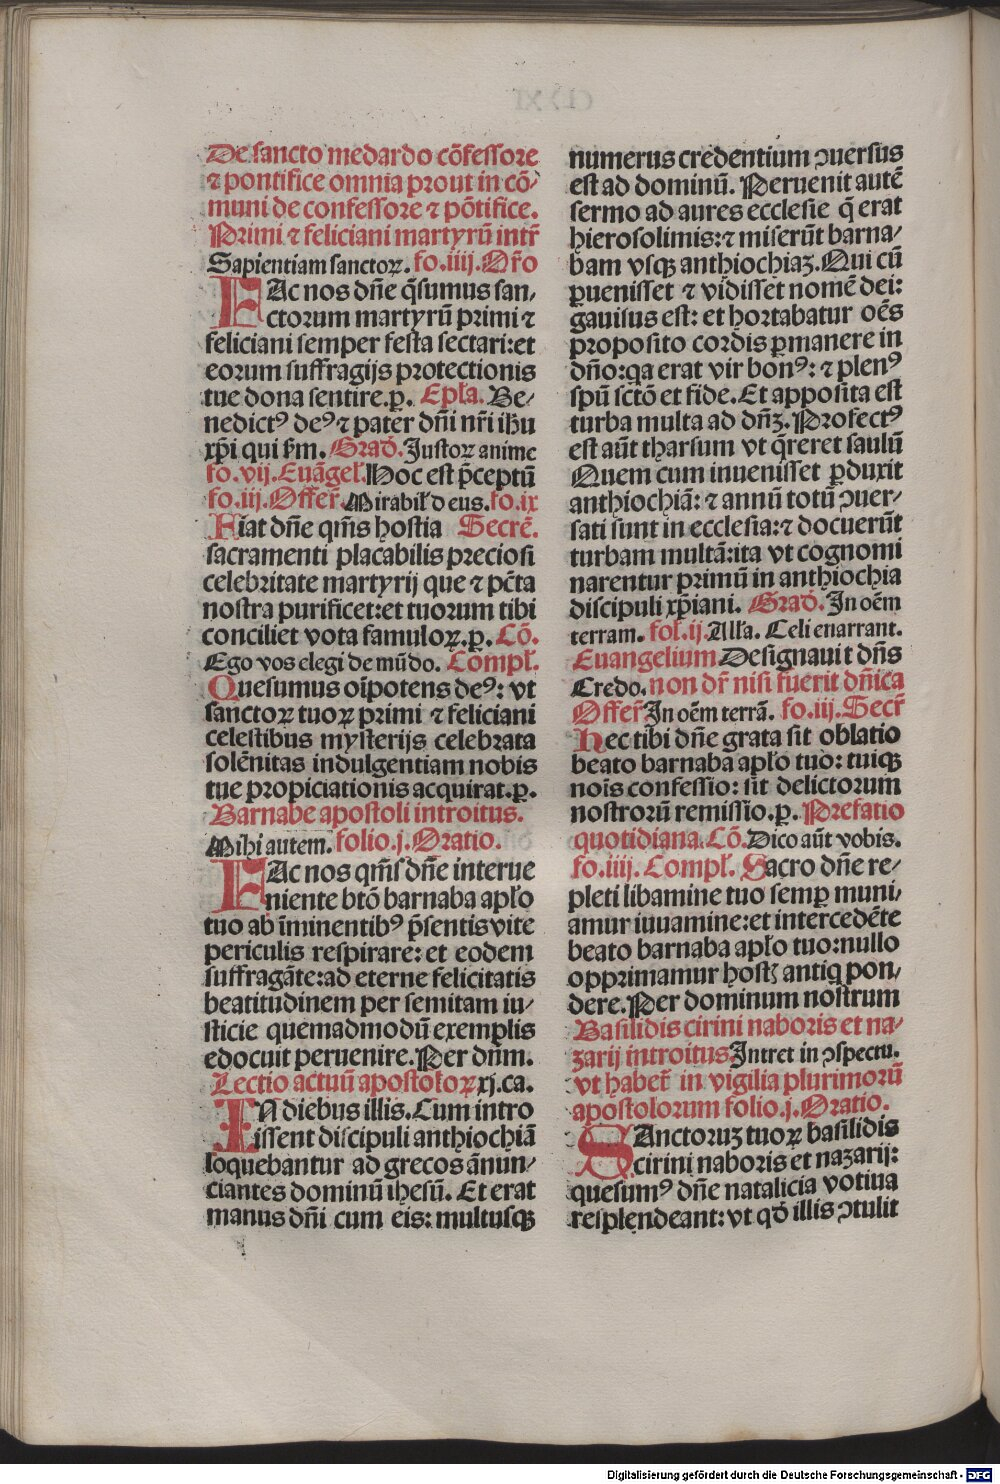 De sancto medardo cōfessore
⁊ pontifice omnia prout in cō-
muni de confessore ⁊ pōtifice.
Primi ⁊ feliciani martyrū intr̄
Sapientiam sanctoꝝ. fo.iiij. Or̄o
FAc nos dn̄e q̄sumus san-
ctorum martyrū primi ⁊
feliciani semper festa sectari:et
eorum suffragijs protectionis
tue dona sentire.p. Epl̄a. Be-
nedictꝰ deꝰ ⁊ pater dn̄i nr̄i ih̄u
xp̄i qui ẜm. Grad̄. Iustoꝝ anime
fo.vij. Euāgel̄. Hoc est p̄ceptū
fo.iij. Offer̄. Mirabil̄ deus. fo.ix
Fiat dn̄e qm̄s hostia Secre̅.
sacramenti placabilis preciosi
celebritate martyrij que ⁊ pct̄a
nostra purificet:et tuorum tibi
conciliet vota famuloꝝ.p. Cō.
Ego vos elegi de mūdo. Compl̄.
Quesumus oīpotens deꝰ: vt
sanctoꝝ tuoꝝ primi ⁊ feliciani
celestibus mysterijs celebrata
solēnitas indulgentiam nobis
tue propiciationis acquirat.p.
Barnabe apostoli introitus.
Mihi autem. folio.j. Oratio.
FAc nos qm̄s dn̄e interue
niente btō barnaba apl̄o
tuo ab īminentibꝰ p̄sentis vite
periculis respirare: et eodem
suffragāte:ad eterne felicitatis
beatitudinem per semitam iu-
sticie quemadmodū exemplis
edocuit peruenire. Per dn̄m.
Lectio actuū apostoloꝝ xj.ca.
IN diebus illis. Cum intro
issent discipuli anthiochiā
loquebantur ad grecos ānun-
ciantes dominū ihesū. Et erat
manus dn̄i cum eis: multusqꝫ
numerus credentium ꝯuersus
est ad dominū. Peruenit autē
sermo ad aures ecclesie q̄ erat
hierosolimis:⁊ miserūt barna-
bam vsqꝫ anthiochiaꝫ. Qui cū
ꝑuenisset ⁊ vidisset nomē dei:
gauisus est: et hortabatur oēs
proposito cordis ꝑmanere in
dn̄o:qa erat vir bonꝰ: ⁊ plenꝰ
spū sctō et fide. Et apposita est
turba multa ad dn̄ꝫ. Profectꝰ
est aūt tharsum vt q̄reret saulū
Quem cum inuenisset ꝑduxit
anthiochiā: ⁊ annū totū ꝯuer-
sati sunt in ecclesia:⁊ docuerūt
turbam multā:ita vt cognomi
narentur primū in anthiochia
discipuli xp̄iani. Grad̄. In oēm
terram. fol̄.ij. All̄a. Celi enarrant.
Euangelium Designauit dn̄s
Credo. non dr̄ nisi fuerit dn̄ica
Offer̄ In oēm terrā. fo.iij. Secr̄
Hec tibi dn̄e grata sit oblatio
beato barnaba apl̄o tuo: tuiqꝫ
noīs confessio: sit delictorum
nostrorū remissio.p. Prefatio
quotidiana. Cō. Dico aūt vobis.
fo.iiij. Compl̄. Sacro dn̄e re-
pleti libamine tuo semꝑ muni-
amur iuuamine:et intercedēte
beato barnaba apl̄o tuo:nullo
opprimamur hostꝭ antiq pon-
dere. Per dominum nostrum
Basilidis cirini naboris et na-
zarij introitus Intret in ꝯspectu.
vt haber̄ in vigilia plurimorū
apostolorum folio.j. Oratio.
SAnctoruꝫ tuoꝝ basilidis
cirini naboris et nazarij:
quesumꝰ dn̄e natalicia votiua
resplendeant: vt qd̄ illis ꝯtulit
Digitalisierung gefördert durch die Deutsche Forschungsgemeinschaft - DFG